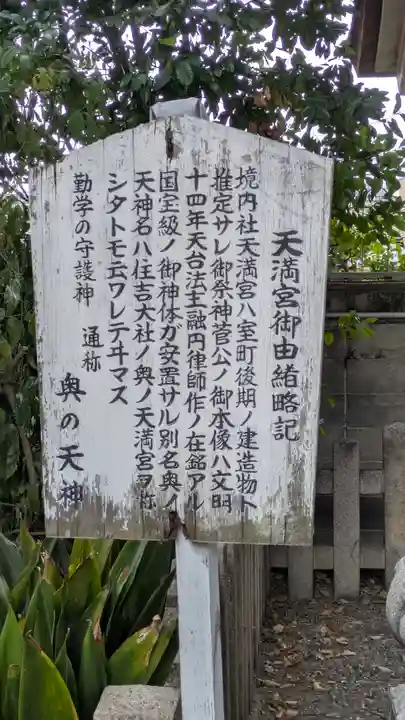 天満宮御由緒略記
境内社天満宮ハ室町後期ノ建造物ト
推定サレ御祭神菅公ノ御木像ハ文明
十四年天台法主融円律師作ノ在銘アル
国宝級ノ御神体ガ安置サル別名奥ノ
天神名ハ住吉大社ノ奥ノ天満宮ヲ称
シタトモ云ワレテヰマス
勤学の守護神 通称 奥の天神